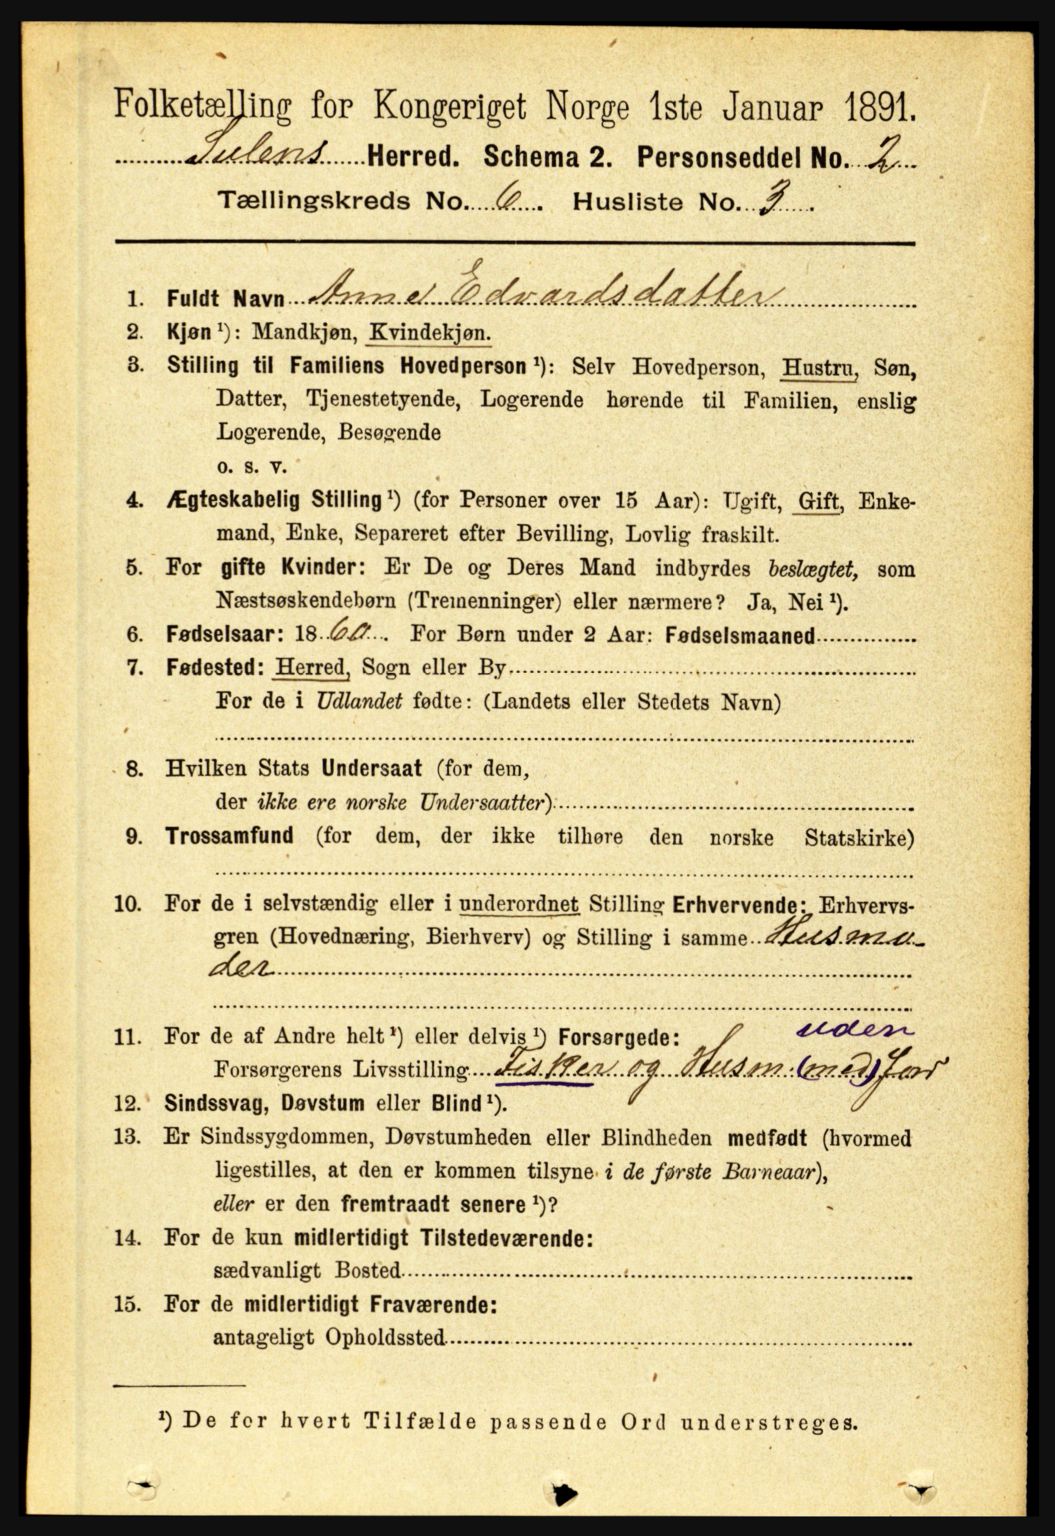 Folketælling for Kongeriget Norge 1ste Januar 1891.
Sulens Herred. Schema 2. Personseddel No. 2
Tællingskreds No. 6. Husliste No. 3.
1. Fuldt Navn Anne Edvardsdatter
2. Kjøn ¹): Mandkjøn, Kvindekjøn.
3. Stilling til Familiens Hovedperson ¹): Selv Hovedperson, Hustru, Søn,
Datter, Tjenestetyende, Logerende hørende til Familien, enslig
Logerende, Besøgende
o. s. v.
4. Ægteskabelig Stilling ¹) (for Personer over 15 Aar): Ugift, Gift, Enke-
mand, Enke, Separeret efter Bevilling, Lovlig fraskilt.
5. For gifte Kvinder: Er De og Deres Mand indbyrdes beslægtet, som
Næstsøskendebørn (Tremenninger) eller nærmere? Ja, Nei ¹).
6. Fødselsaar: 1860. For Børn under 2 Aar: Fødselsmaaned
7. Fødested: Herred, Sogn eller By
For de i Udlandet fødte: (Landets eller Stedets Navn)
8. Hvilken Stats Undersaat (for dem,
der ikke ere norske Undersaatter)
9. Trossamfund (for dem, der ikke tilhøre den norske Statskirke)
10. For de i selvstændig eller i underordnet Stilling Erhvervende: Erhvervs-
gren (Hovednæring, Bierhverv) og Stilling i samme Husmo-
der
11. For de af Andre helt ¹) eller delvis ¹) Forsørgede: uden
Forsørgerens Livsstilling Fisker og Husm. (med) Jord
12. Sindssvag, Døvstum eller Blind ¹).
13. Er Sindssygdommen, Døvstumheden eller Blindheden medfødt (hvormed
ligestilles, at den er kommen tilsyne i de første Barneaar),
eller er den fremtraadt senere ¹)?
14. For de kun midlertidigt Tilstedeværende:
sædvanligt Bosted
15. For de midlertidigt Fraværende:
antageligt Opholdssted
¹) De for hvert Tilfælde passende Ord understreges.